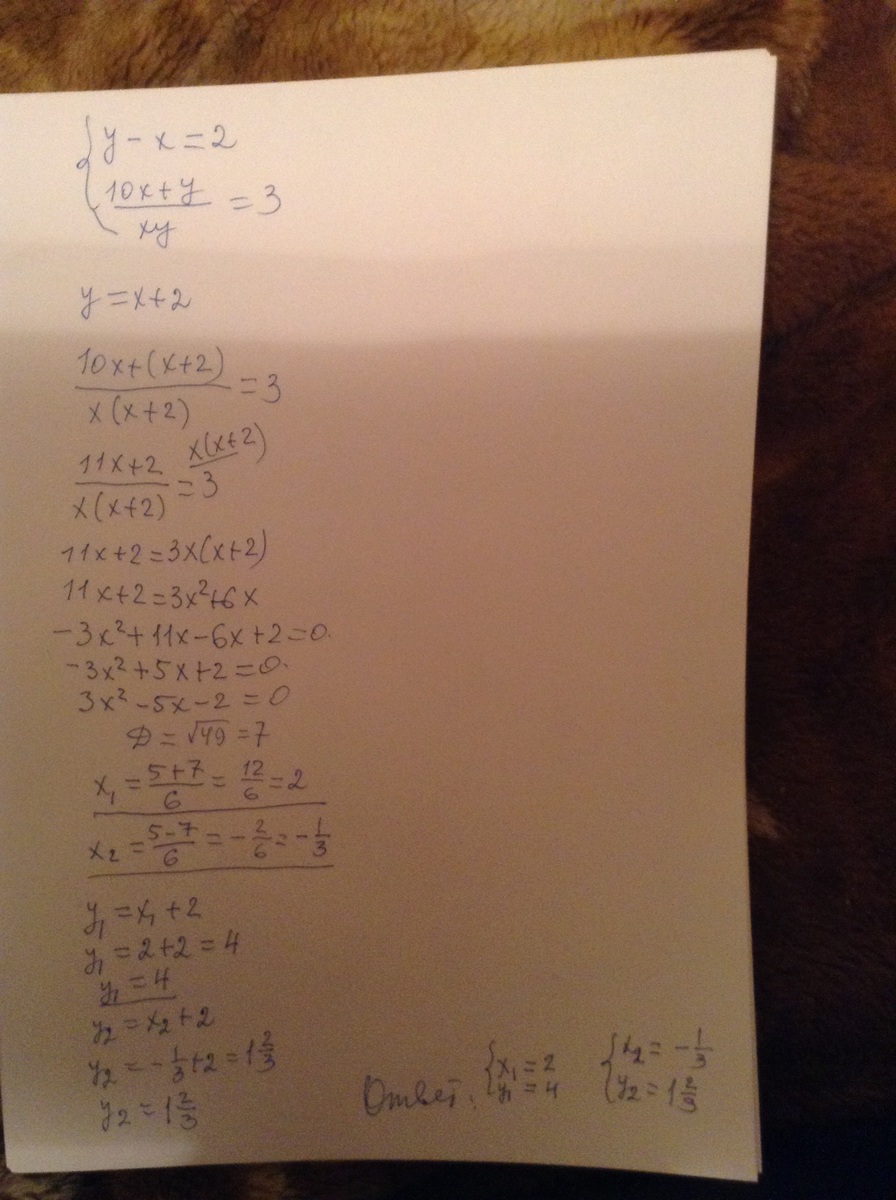 { y - x = 2
{ (10x+y)/(xy) = 3
y = x+2
(10x+(x+2))/(x(x+2)) = 3
(11x+2)/(x(x+2)) = 3 x(x+2)
11x+2=3x(x+2)
11x+2=3x²+6x
-3x²+11x-6x+2=0.
-3x²+5x+2=0.
3x²-5x-2=0
D = √49 = 7
x₁ = (5+7)/6 = 12/6 = 2
x₂ = (5-7)/6 = -2/6 = -1/3
y₁ = x₁ + 2
y₁ = 2+2 = 4
y₁ = 4
y₂ = x₂+2
y₂ = -1/3+2 = 1 2/3
y₂ = 1 2/3
Ответ: { x₁ = 2 y₁ = 4 { x₂ = -1/3 y₂ = 1 2/3